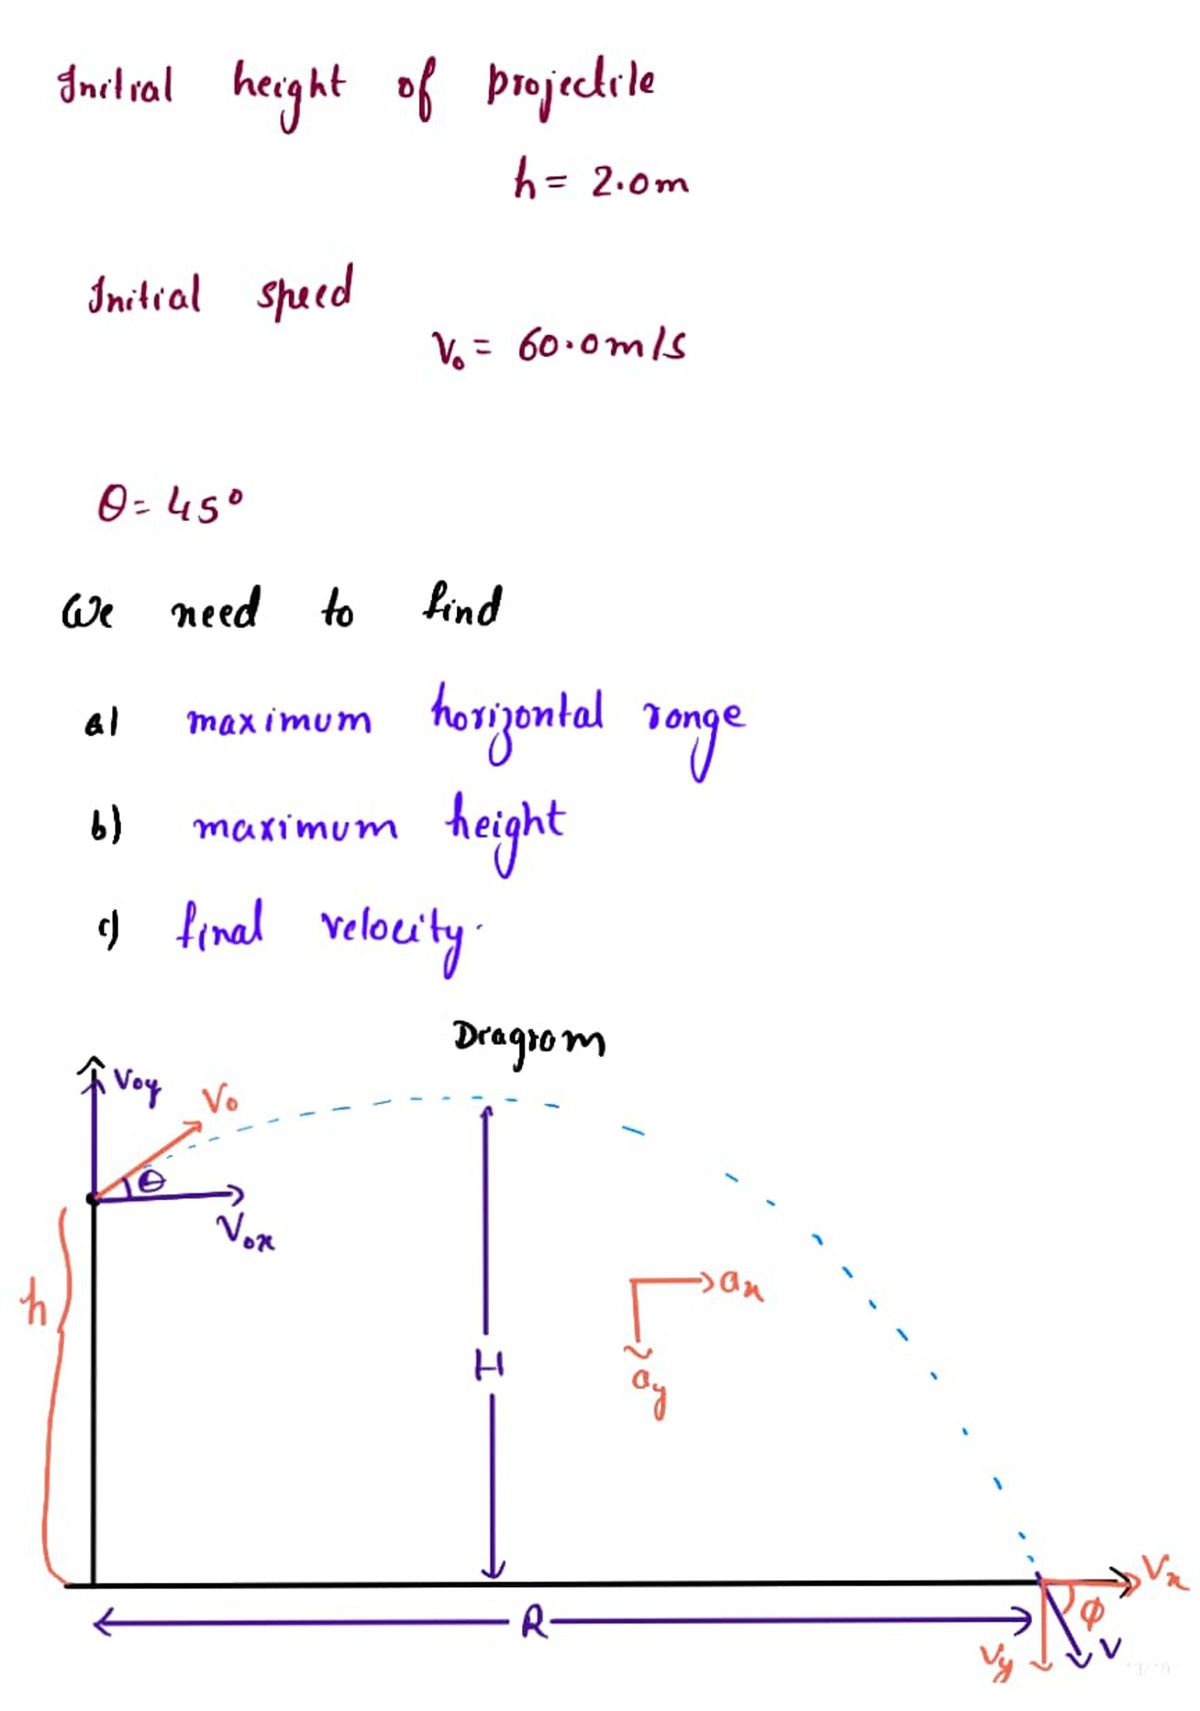 Initial height of projectile
h = 2.0m
Initial speed
V₀ = 60.0m/s
θ = 45°
We need to find
a) maximum horizontal range
b) maximum height
c) final velocity.
Diagram
Voy
Vo
θ
Vox
h
H
ax
ay
R
Vx
ϕ
Vy
V